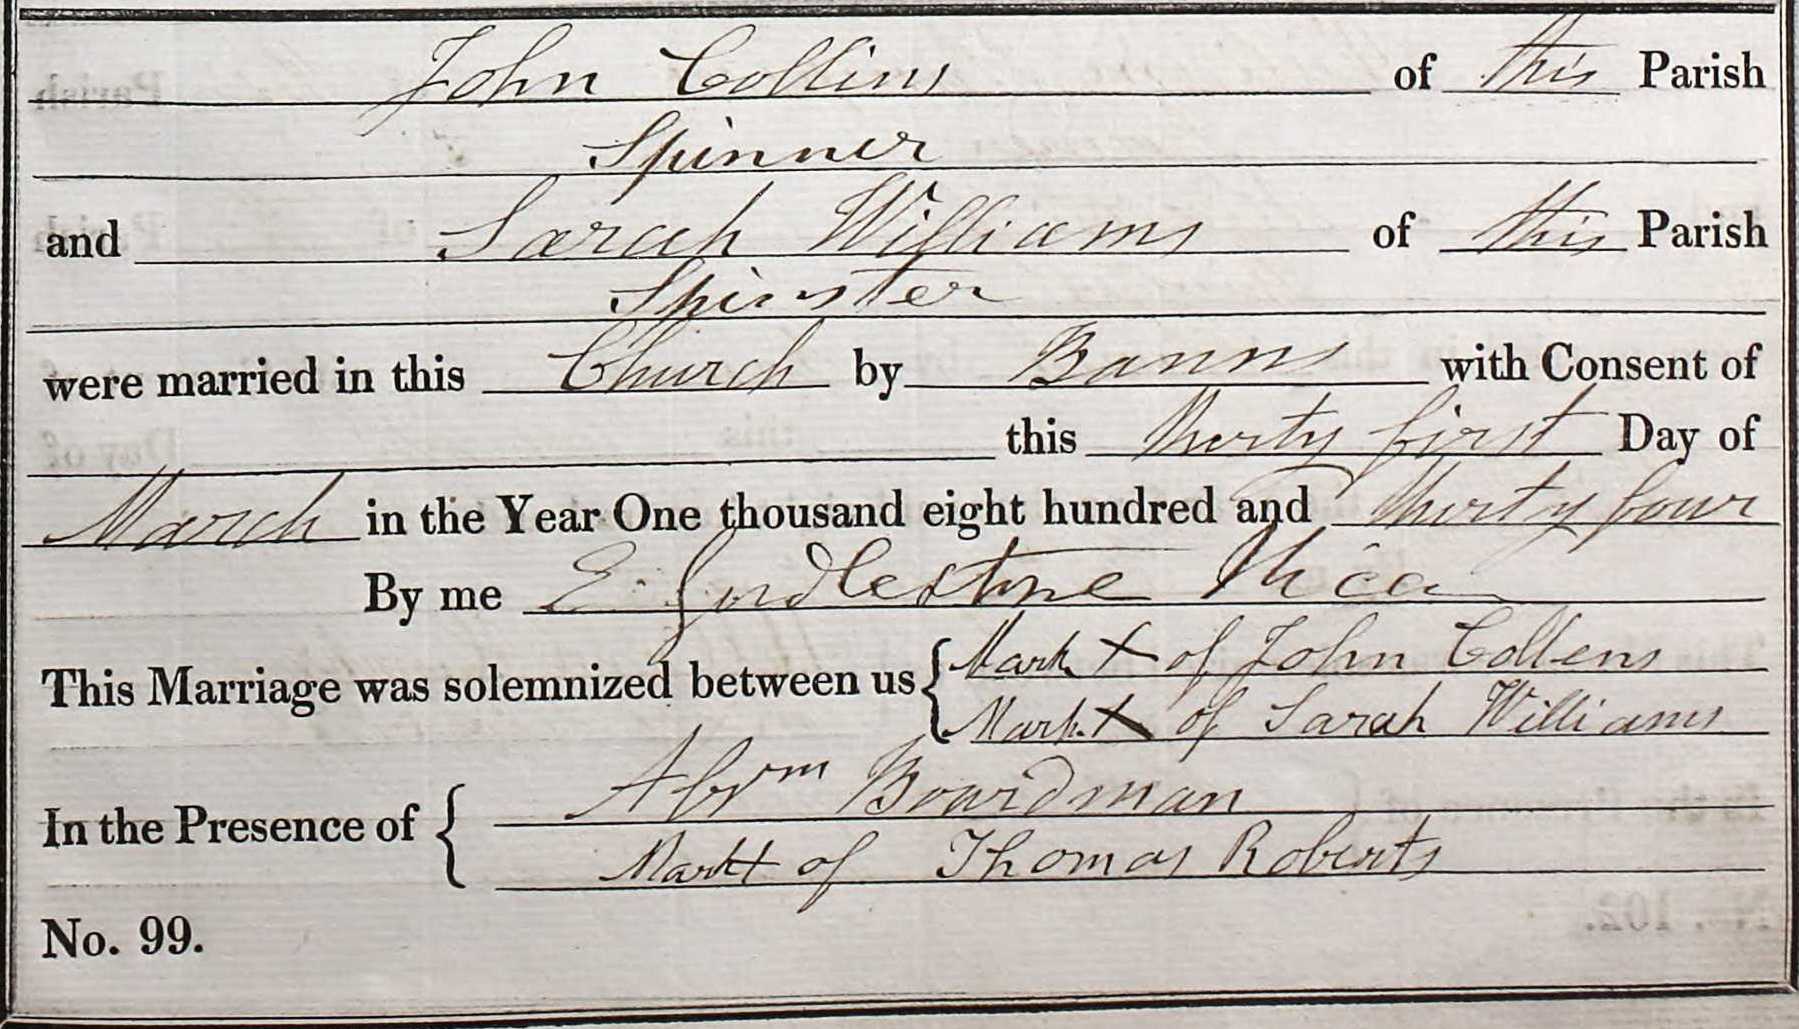 John Collins of this Parish
Spinner
and Sarah Williams of this Parish
Spinster
were married in this Church by Banns with Consent of
this thirty first Day of
March in the Year One thousand eight hundred and thirty four
By me E Girdlestone Vicar
This Marriage was solemnized between us { Mark X of John Collens
Mark X of Sarah Williams
In the Presence of { Abrm Boardman
Mark X of Thomas Roberts
No. 99.